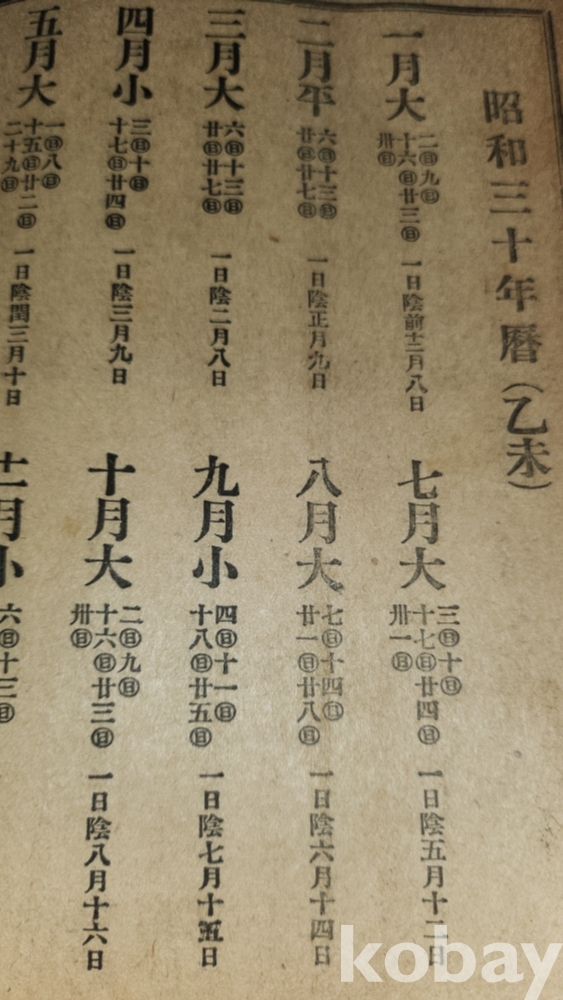 昭和三十年暦(乙未)
一月大
二㊐九㊐
十六㊐廿三㊐
卅㊐
一日陰前十二月八日
二月平
六㊐十三㊐
廿㊐廿七㊐
一日陰正月九日
三月大
六㊐十三㊐
廿㊐廿七㊐
一日陰二月八日
四月小
三㊐十㊐
十七㊐廿四㊐
一日陰三月九日
五月大
一㊐八㊐
十五㊐廿二㊐
二十九㊐
一日陰閏三月十日
七月大
三㊐十㊐
十七㊐廿四㊐
卅一㊐
一日陰五月十二日
八月大
七㊐十四㊐
廿一㊐廿八㊐
一日陰六月十四日
九月小
四㊐十一㊐
十八㊐廿五㊐
一日陰七月十五日
十月大
二㊐九㊐
十六㊐廿三㊐
卅㊐
一日陰八月十六日
十一月小
六㊐十三㊐
kobay